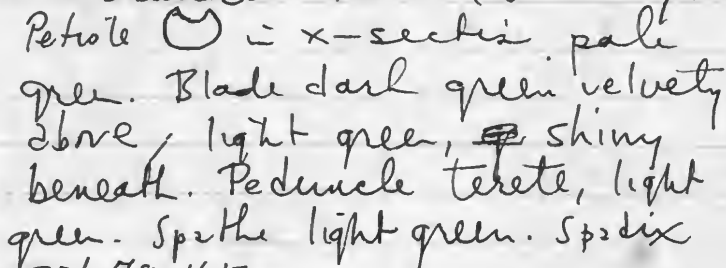 Petiole in x-section pale
green. Blade dark green velvety
above, light green, shiny
beneath. Peduncle terete, light
green. Spathe light green. Spadix